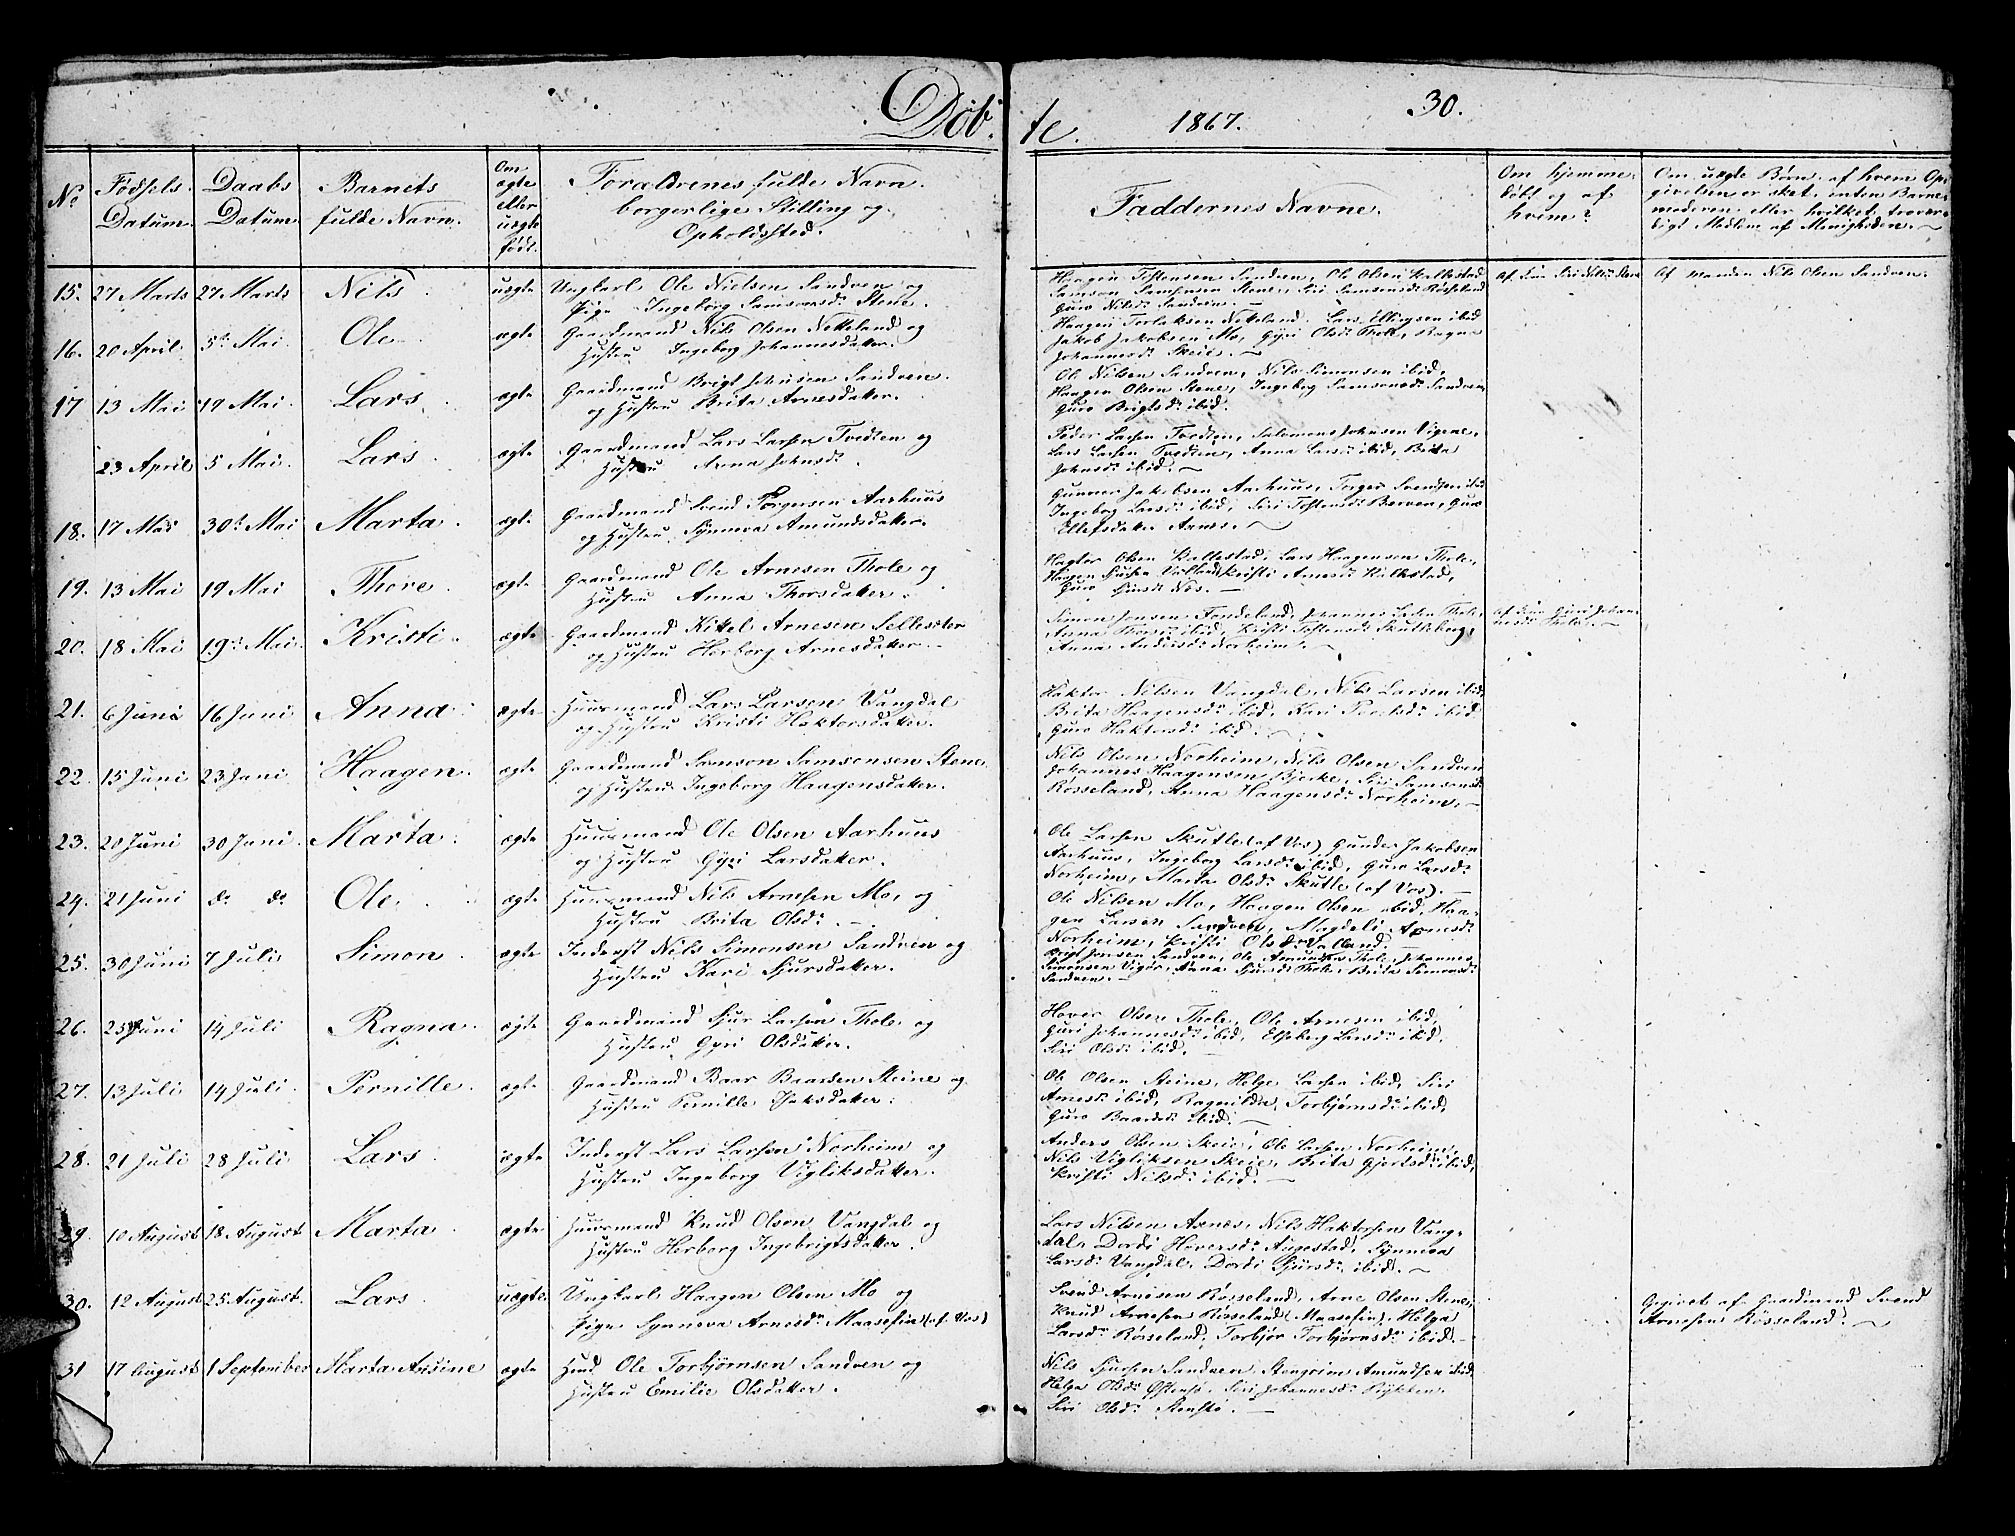 Døb
te.
1867.
30.
No
Fødsels
Datum.
Daabs
Datum
Barnets
fulde Navn.
Om
ægte
eller
uægte
født.
Forældrenes fulde Navn
borgerlige Stilling og
Opholdssted.
Faddernes Navne.
Om hjemme
døbt og af
hvem?
Om uægte Børn, af hvem Op
givelsen er sket, enten Barne
moderen, eller hvilket trovær
digt Medlem af Menigheden.
15. 27 Marts 27 Marts Nils uægte Ungkarl Ole Nielsen Sandven og
Pige Ingeborg Samsonsdr Stene.
Haagen Tostensen Sandven, Ole Olsen
Samson Samsonsen Stene, Siri Samsonsdr Rosseland
Guro Nilsdr Sandven.
Af Manden Nils Olsen Sandven.
16. 20 April 5te Mai Ole ægte Gaardmand Nils Olsen Netteland og
Hustru Ingeborg Johannesdatter.
Haagen Torlaksen Netteland, Lars Ellingsen ibid
Jakob Jakobsen Mo, Gyri Olsdr Thole, Ragna
Johannesdr Skeie.
17 13 Mai 19 Mai Lars ægte Gaardmand Brigt Johnsen Sandven
og Hustru Brita Arnesdatter.
Ole Nilsen Sandven, Nils Simonsen ibid,
Haagen Olsen Stene, Ingeborg Samsonsdr Sandven
Guro Brigtsdr ibid.
23 April 5 Mai Lars ægte Gaardmand Lars Larsen Tvedten og
Hustru Anna Johnsdr.
Peder Larsen Tvedten, Salomon Johnsen
Lars Larsen Tvedten, Anna Larsdr ibid, Brita
Johnsdr ibid.
18. 17 Mai 30te Mai Marta ægte Gaardmand Svend Torgersen Aarhuus
og Hustru Synneva Amundsdatter.
Gunner Jakobsen Aarhuus, Torger Svendsen ibid
Ingeborg Larsdr ibid, Siri Tostensdr Berven, Guro
Ellefsdatter
19. 13 Mai 19 Mai Thore ægte Gaardmand Ole Arnesen Thole og
Hustru Anna Thorsdatter.
Hagtor Olsen Lars Haagensen Thole,
Haagen Sjursen Valland, Kristi Arnesdr
Guro Sjursdr Nes.
20. 18 Mai 19de Mai Kristi ægte Gaardmand Kittel Arnesen Sellester
og Hustru Herborg Arnesdatter.
Simon Jonsen Johannes Larsen Thole,
Anna Thorsdr ibid, Kristi Tostensdr Skutleberg,
Anna Andersdr Norheim.
21. 6 Juni 16 Juni Anna ægte Huusmand Lars Larsen Vangdal
og Hustru Kristi Haktorsdatter.
Haktor Nilsen Vangdal, Nils Larsen ibid,
Brita Haagensdr ibid, Kari ibid
Guro Haktorsdr ibid.
22. 15 Juni 23 Juni Haagen ægte Gaardmand Samson Samsonsen Stene
og Hustru Ingeborg Haagensdatter.
Nils Olsen Norheim, Nils Olsen Sandven
Johannes Haagensen Bjerke, Siri Samsonsdr
Rosseland, Anna Haagensdr Norheim.
23. 20 Juni 30 Juni Marta ægte Huusmand Ole Olsen Aarhuus
og Hustru Gyri Larsdatter.
Ole Larsen Skutle (af Vos) Gunder Jakobsen
Aarhuus, Ingeborg Larsdr ibid, Guro Larsdr
Norheim, Marta Olsdr Skutle (af Vos).
24. 21 Juni do do Ole ægte Huusmand Nils Arnesen Mo, og
Hustru Brita Olsdr.
Ole Nilsen Mo, Haagen Olsen ibid, Haa-
gen Larsen Sandven, Magdeli Arnesdr
Norheim, Kristi Olsdr Valland.
25. 30 Juni 7 Juli Simon ægte Inderst Nils Simonsen Sandven og
Hustru Kari Sjursdatter.
Brigt Jonsen Sandven, Ole Amundsen Thole, Johannes
Simonsen Vigør, Anna Sjursdr Thole, Brita Simonsdr
Sandven.
26. 25 Juni 14 Juli Ragna ægte Gaardmand Sjur Larsen Thole, og
Hustru Gyri Olsdatter.
Hover Olsen Thole, Ole Arnesen ibid,
Guri Johannesdr ibid, Elseberg Larsdr ibid,
Siri Olsdr ibid.
27. 13 Juli 14 Juli Pernille ægte Gaardmand Baar Baarsen Steine og
Hustru Pernille Isaksdatter.
Ole Olsen Steine, Helge Larsen ibid, Siri
Arnesdr ibid, Ragnilda Torbjørnsdr ibid,
Guro Baardsdr ibid.
28. 21 Juli 28 Juli Lars ægte Inderst Lars Larsen Norheim og
Hustru Ingeborg Vigliksdatter.
Anders Olsen Skeie, Ole Larsen Norheim,
Nils Vigliksen Skeie, Brita Gjertsdr ibid,
Kristi Nilsdr ibid.
29. 10 August 18 August Marta ægte Huusmand Knud Olsen Vangdal og
Hustru Herborg Ingebrigtsdatter.
Lars Nilsen Axnes, Nils Haktorsen Vang-
dal, Dordi Hoversdr Augestad, Synneva
Larsdr Vangdal, Dordi Sjursdr ibid.
30. 12 August 25 August Lars uægte Ungkarl Haagen Olsen Mo og
Pige Synneva Arnesdr Maasefin (af Vos)
Svend Arnesen Rosseland, Arne Olsen Stene,
Knud Arnesen Rosseland (Maasefin), Helga
Larsdr Rosseland, Torbjør Torbjørnsdr ibid.
Opgivet af Gaardmand Svend
Arnesen Rosseland.
31 17 August 1 September Marta Andine ægte Ole Torbjørnsen Sandven og
Hustru Emilie Olsdatter.
Nils Sjursen Sandven, Stengrim Amundsen ibid
Helga Olsdr Østensø, Siri Johannesdr Rykken,
Siri Olsdr Stenstø.